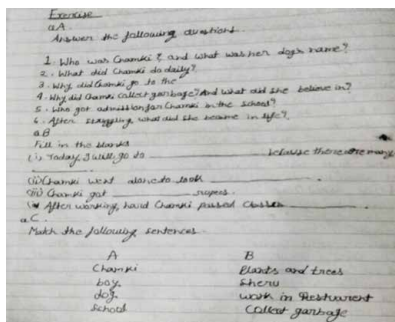 Exercise
Q A.
Answer the following questions.
1. Who was Chamki? and what was her dog's name?
2. What did Chamki do daily?
3. Why did Chamki go to the
4. Why did Chamki collect garbage? And what did she believe in?
5. Who got admission for Chamki in the school?
6. After struggling what did she become in life?
Q B
Fill in the blanks
(i) Today, I will go to ____________ because there are many
________.
(ii) Chamki went alone to look ____________
(iii) Chamki got ________ rupees.
After working, hard Chamki passed class ____________.
Q C.
Match the following sentences.
A B
Chamki Plants and trees
boy Sheru
dog work in Resturent
School Collect garbage